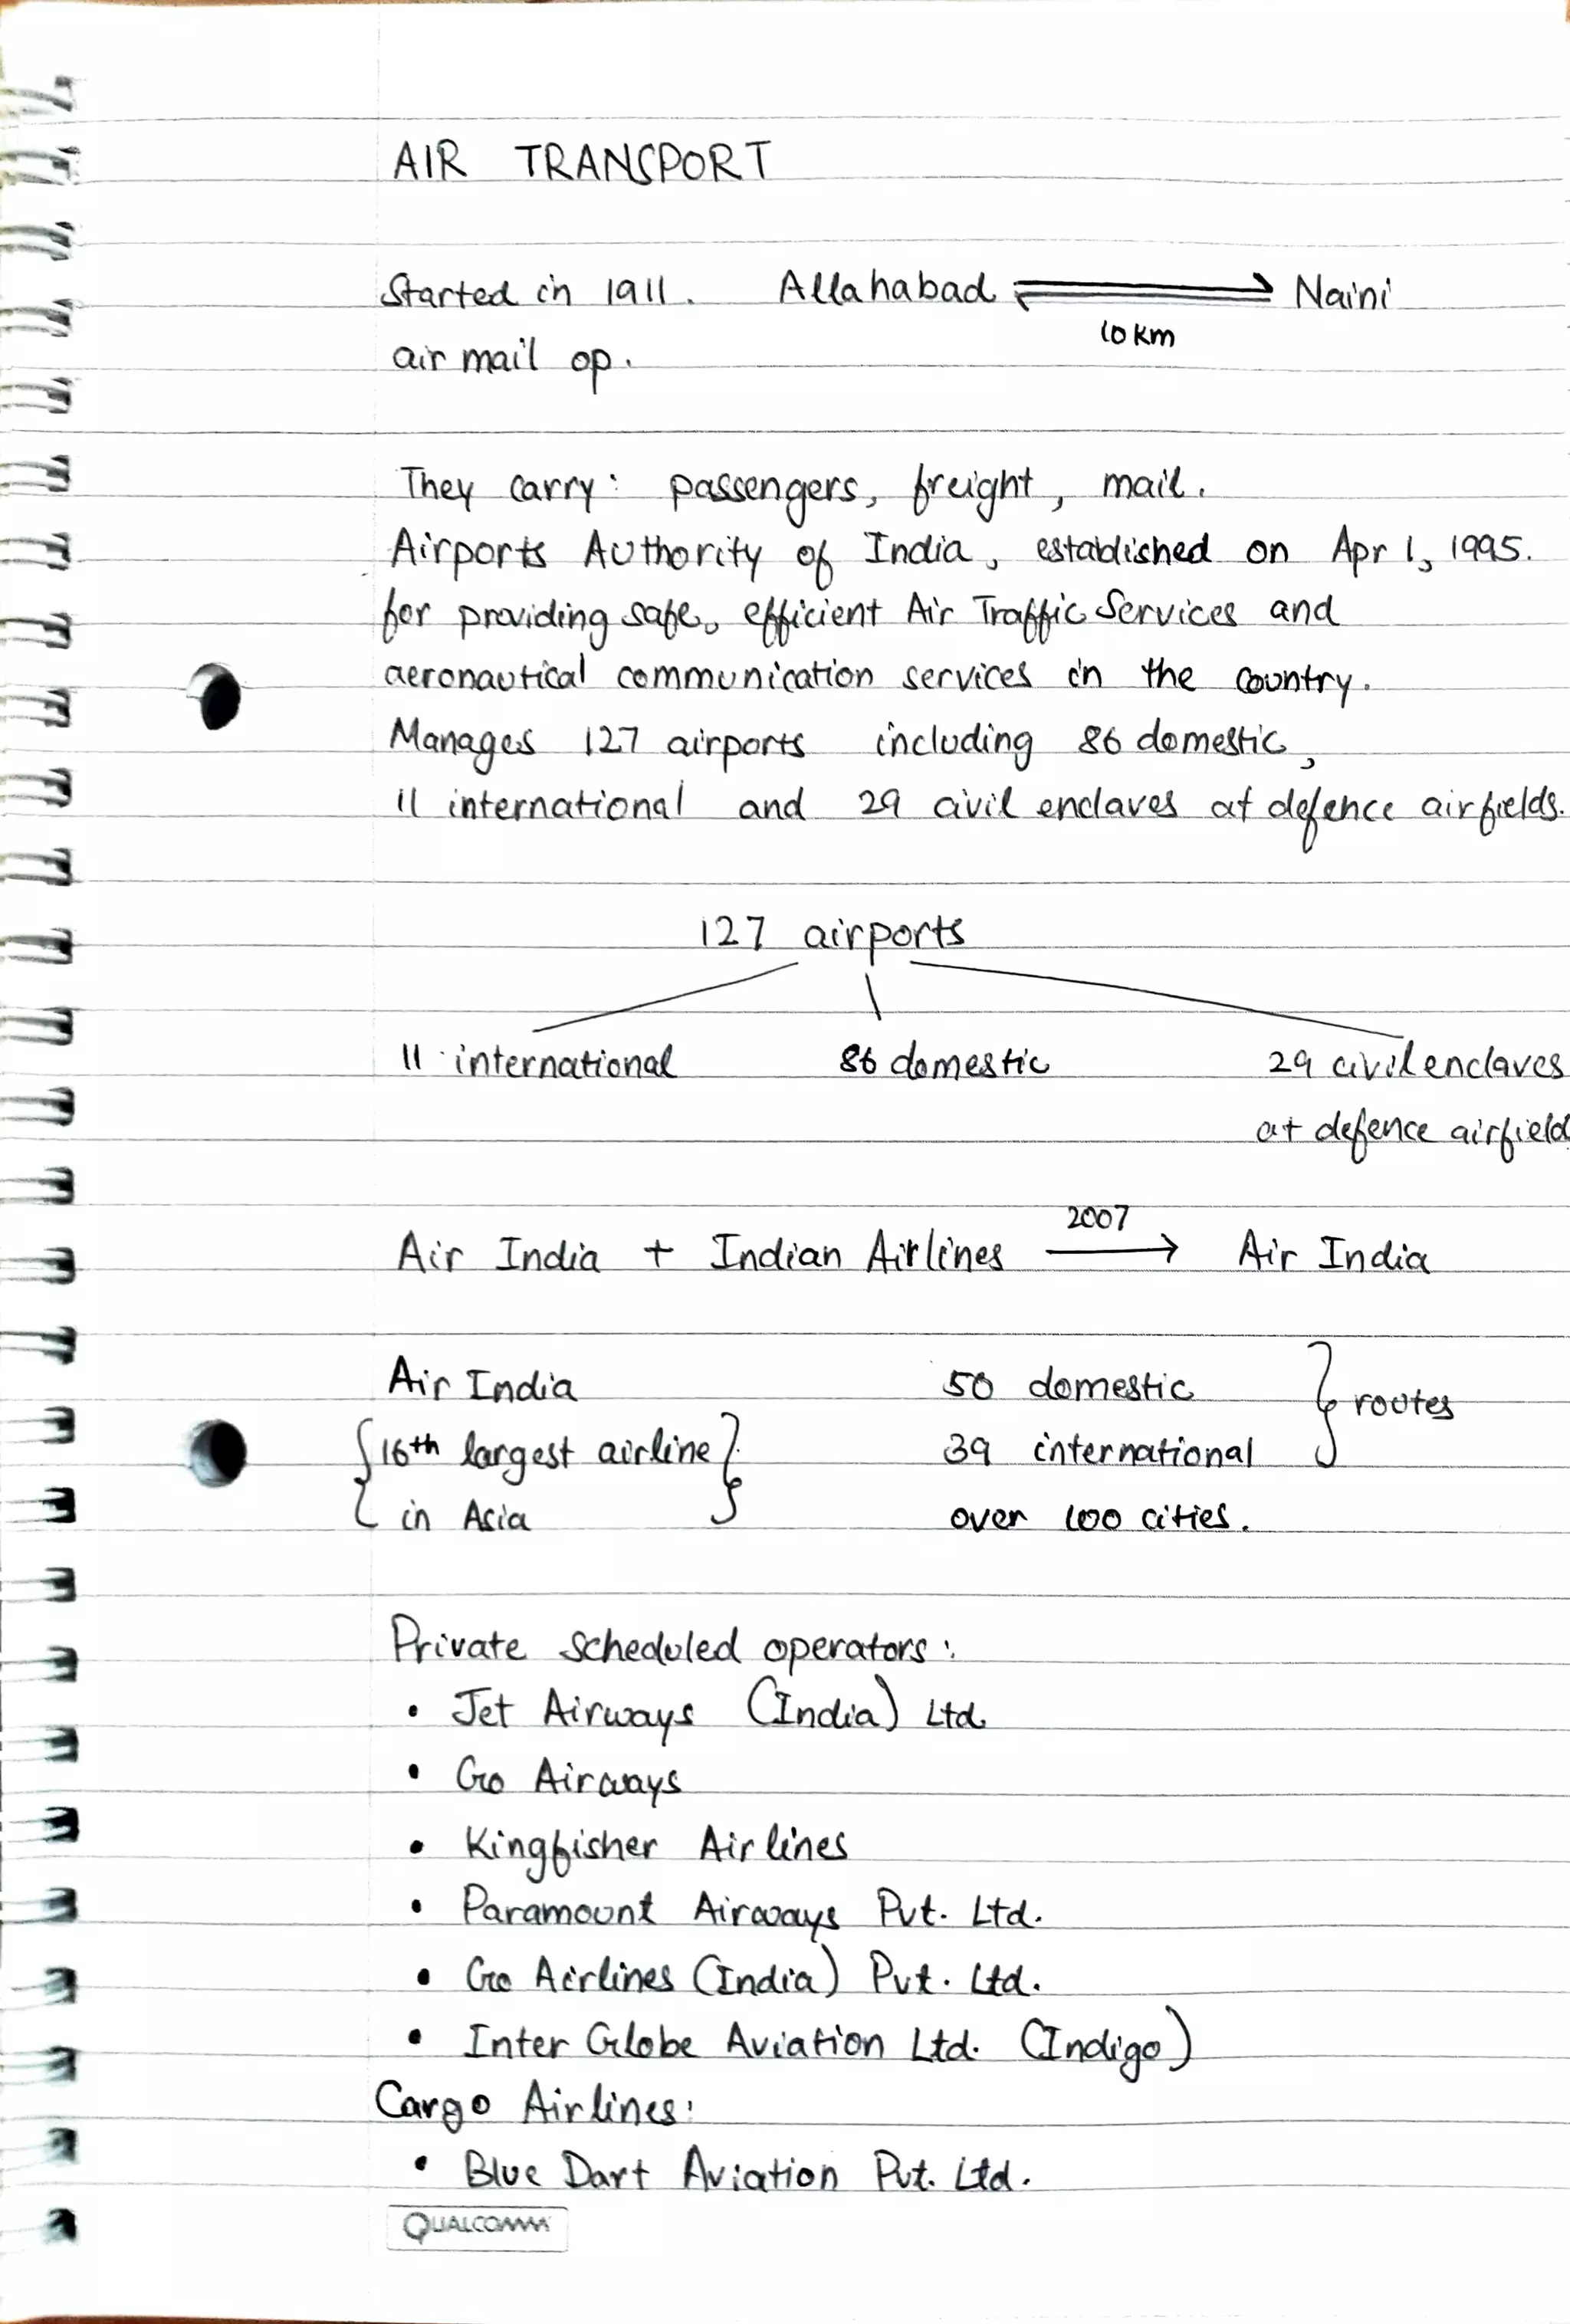 AIR TRANSPORT
Started in 1911. Allahabad ⇌ Naini
10 km
air mail op.
They carry: passengers, freight, mail.
Airports Authority of India, established on Apr 1, 1995.
for providing safe, efficient Air Traffic Services and
aeronautical communication services in the country.
Manages 127 airports including 86 domestic,
11 international and 29 civil enclaves at defence airfields.
127 airports
11 international 86 domestic 29 civil enclaves
at defence airfield
2007
Air India + Indian Airlines → Air India
Air India 50 domestic } routes
{16th largest airline} 39 international
in Asia over 100 cities.
Private scheduled operators:
• Jet Airways (India) Ltd.
• Go Airways
• Kingfisher Airlines
• Paramount Airways Pvt. Ltd.
• Go Airlines (India) Pvt. Ltd.
• Inter Globe Aviation Ltd. (Indigo)
Cargo Airlines:
• Blue Dart Aviation Pvt. Ltd.
QUALCOMM